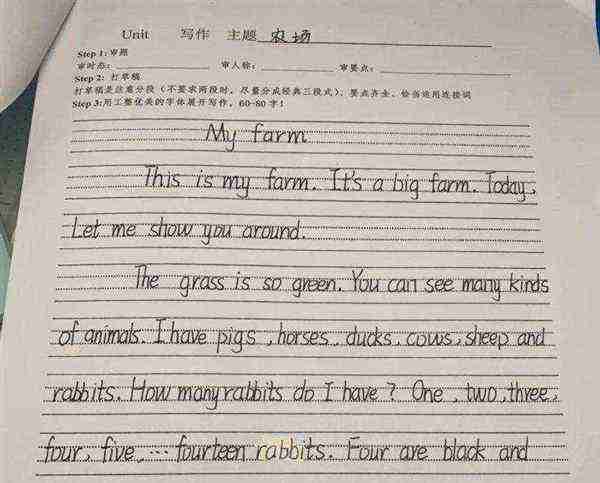 Unit 写作 主题 农场
Step 1:审题
审时态: 审人称: 审要点:
Step 2: 打草稿
打草稿是注意分段（不要求两段时，尽量分成经典三段式）、要点齐全、恰当运用连接词
Step 3:用工整优美的字体展开写作，60-80字！
My farm
This is my farm. It's a big farm. Today,
Let me show you around.
The grass is so green. You can see many kinds
of animals. I have pigs, horses, ducks, cows, sheep and
rabbits. How many rabbits do I have? One, two, three,
four, five, … fourteen rabbits. Four are black and